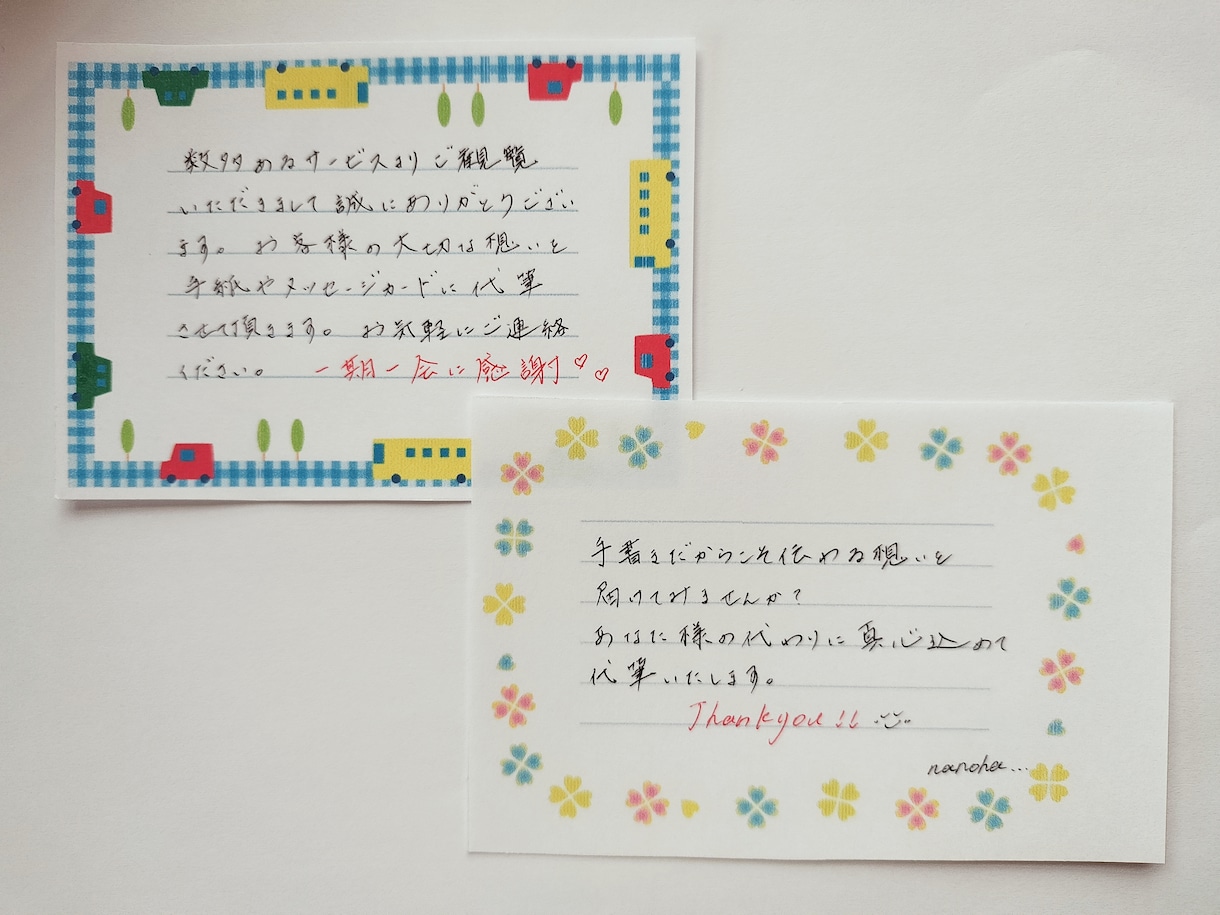 数多あるサービスよりご観覧
いただきまして誠にありがとうござい
ます。お客様の大切な想いを
手紙やメッセージカードに代筆
させて頂きます。お気軽にご連絡
ください。一期一会に感謝♡♡
手書きだからこそ伝わる想いを
届けてみませんか?
あなた様の代わりに真心込めて
代筆いたします。
Thankyou!!
nanoha...